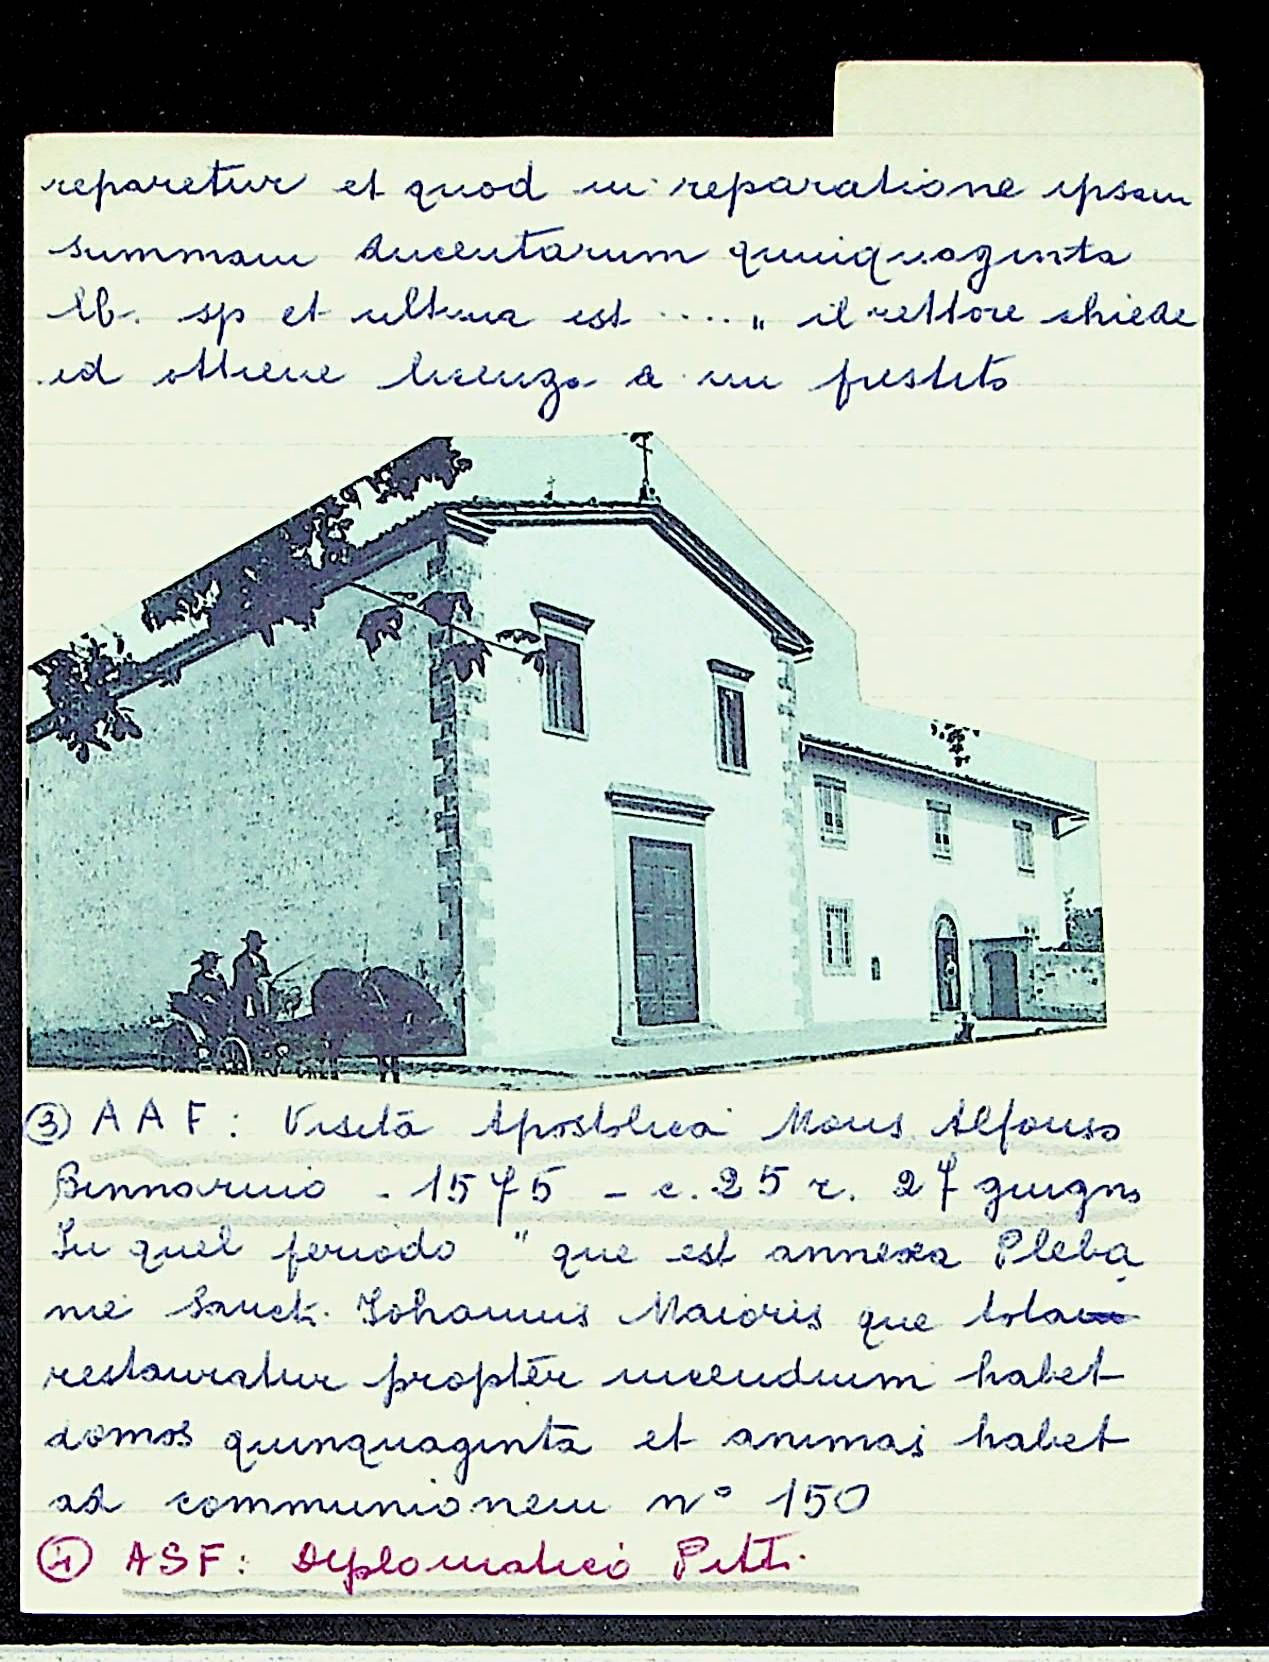 reparetur et quod in reparatione ipsam
summam ducentarum quinquaginta
lb. sp et ultima est ...." il rettore chiede
ed ottiene licenza a un prestito
③ AAF: Visita Apostolica Mons. Alfonso
Binnarino - 1575 - c. 25 r. 27 giugno
In quel periodo "que est annexa Pleba
nie Sanct. Iohannis Maioris que tota
restauratur propter incendium habet
domos quinquaginta et animas habet
ad communionem n° 150
④ ASF: Diplomatico Pitti.